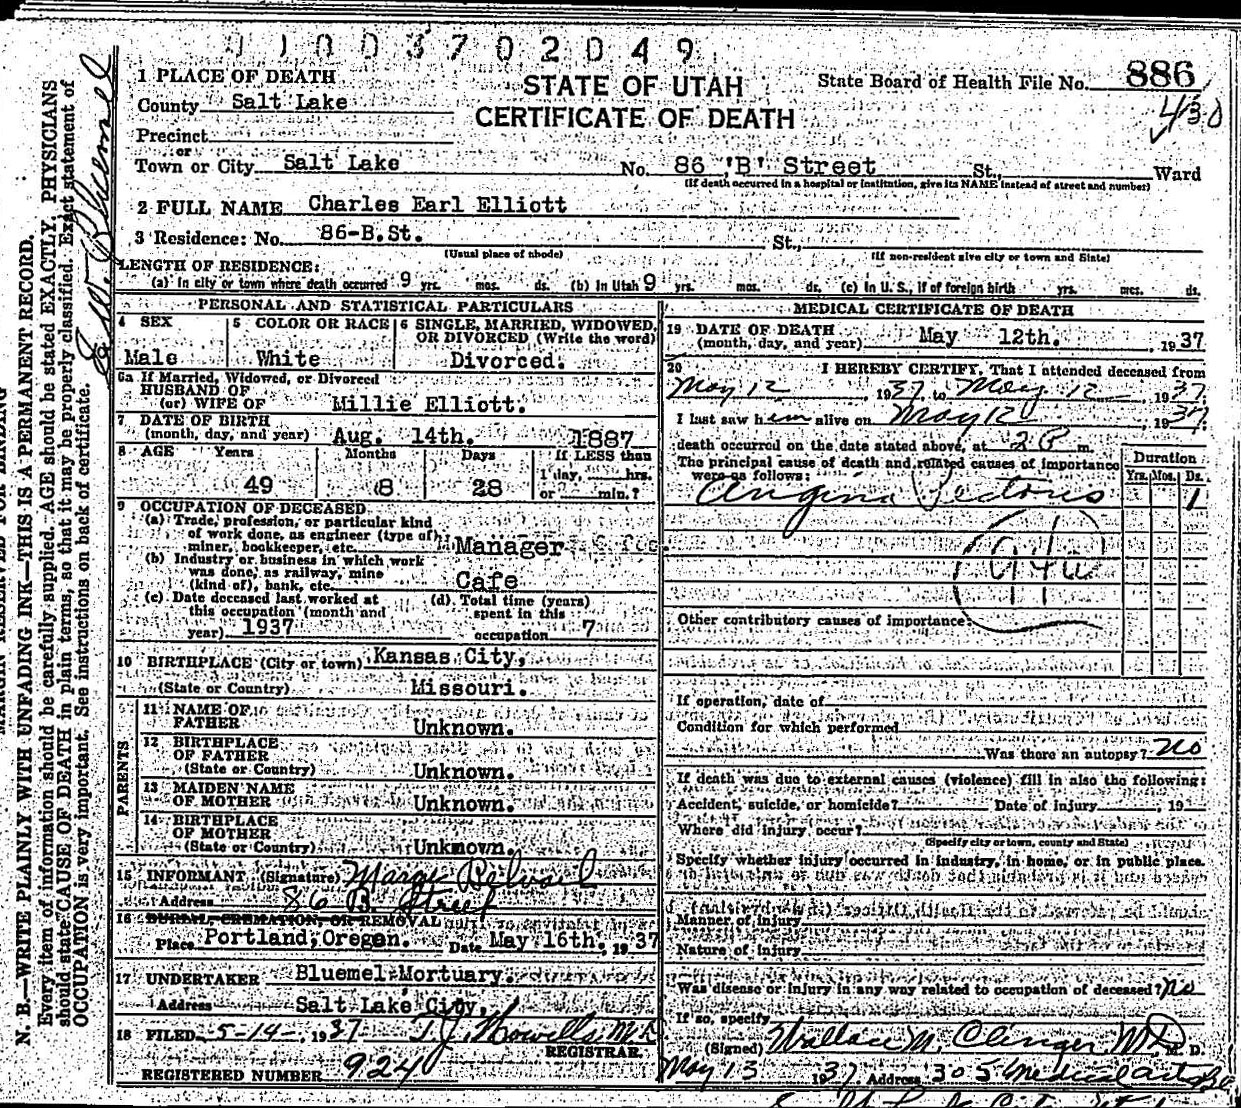 01003702049
1 PLACE OF DEATH
County Salt Lake
Precinct
or
Town or City Salt Lake
STATE OF UTAH
CERTIFICATE OF DEATH
State Board of Health File No. 886
430
No. 86 'B' Street St., Ward
(If death occurred in a hospital or institution, give its NAME instead of street and number)
2 FULL NAME Charles Earl Elliott
3 Residence: No. 86-B.St. St.,
(Usual place of abode) (If non-resident give city or town and State)
LENGTH OF RESIDENCE:
(a) In city or town where death occurred 9 yrs. mos. ds. (b) In Utah 9 yrs. mos. ds. (c) In U. S., if of foreign birth yrs. mos. ds.
PERSONAL AND STATISTICAL PARTICULARS
4 SEX
Male
5 COLOR OR RACE
White
6 SINGLE, MARRIED, WIDOWED, OR DIVORCED (Write the word)
Divorced.
6a If Married, Widowed, or Divorced
HUSBAND OF
(or) WIFE OF Millie Elliott.
7 DATE OF BIRTH
(month, day, and year) Aug. 14th. 1887
8 AGE Years Months Days If LESS than
1 day, hrs.
49 8 28 or min.?
9 OCCUPATION OF DECEASED
(a) Trade, profession, or particular kind
of work done, as engineer (type of)
miner, bookkeeper, etc. Manager
(b) Industry or business in which work
was done, as railway, mine
(kind of), bank, etc. Cafe
(c) Date deceased last worked at
this occupation (month and
year) 1937
(d) Total time (years)
spent in this
occupation 7
10 BIRTHPLACE (City or town) Kansas City,
(State or Country) Missouri.
PARENTS
11 NAME OF
FATHER Unknown.
12 BIRTHPLACE
OF FATHER
(State or Country) Unknown.
13 MAIDEN NAME
OF MOTHER Unknown.
14 BIRTHPLACE
OF MOTHER
(State or Country) Unknown.
15 INFORMANT (Signature)
Address 86 B. Street
16 BURIAL, CREMATION, OR REMOVAL
Place Portland, Oregon. Date May 16th, 1937
17 UNDERTAKER Bluemel Mortuary.
Address Salt Lake City,
18 FILED 5-14-, 1937 T.J. Howells M.D.
REGISTRAR.
REGISTERED NUMBER 924
MEDICAL CERTIFICATE OF DEATH
19 DATE OF DEATH
(month, day, and year) May 12th. , 1937
20 I HEREBY CERTIFY, That I attended deceased from
May 12 , 1937, to May 12 , 1937.
I last saw him alive on May 12 , 1937.
death occurred on the date stated above, at 2 P m.
The principal cause of death and related causes of importance
were as follows:
Duration
Yrs. Mos. Ds.
Angina Pectoris 1
94a
Other contributory causes of importance:
If operation, date of
Condition for which performed
Was there an autopsy? no
If death was due to external causes (violence) fill in also the following:
Accident, suicide, or homicide? Date of injury , 19
Where did injury occur?
(Specify city or town, county and State)
Specify whether injury occurred in industry, in home, or in public place.
Manner of injury
Nature of injury
Was disease or injury in any way related to occupation of deceased? no
If so, specify
(Signed) Wallace M. Clinger M.D., M. D.
May 13 1937 Address 305 Medical Arts
N. B.—WRITE PLAINLY WITH UNFADING INK—THIS IS A PERMANENT RECORD.
Every item of information should be carefully supplied. AGE should be stated EXACTLY. PHYSICIANS
should state CAUSE OF DEATH in plain terms, so that it may be properly classified. Exact statement of
OCCUPATION is very important. See instructions on back of certificate.